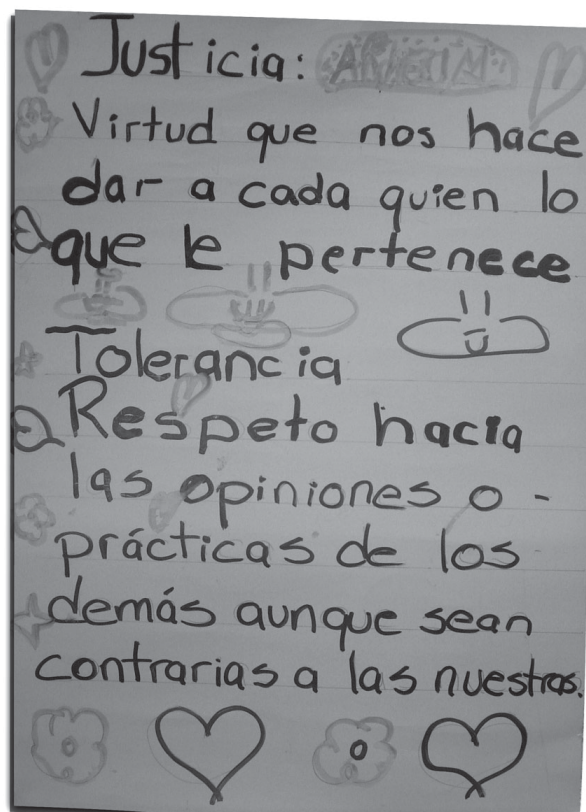 Justicia:
Virtud que nos hace
dar a cada quien lo
que le pertenece
Tolerancia
Respeto hacia
las opiniones o -
prácticas de los
demás aunque sean
contrarias a las nuestras.